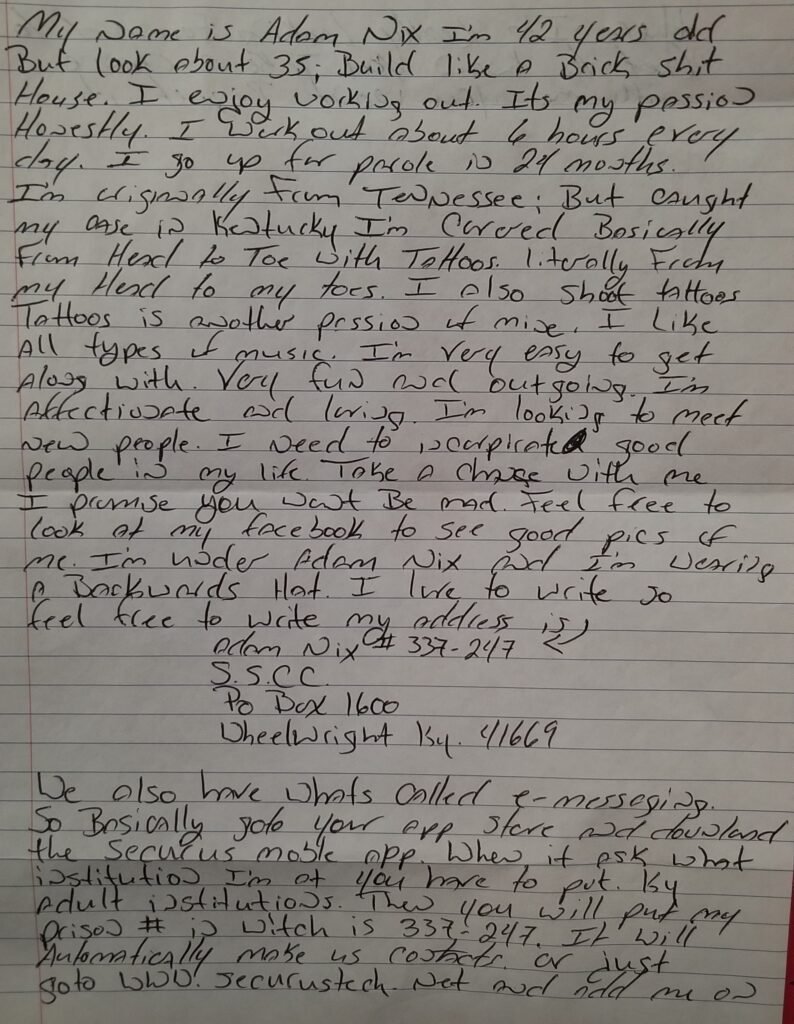 My Name is Adam Nix I'm 42 years old
But look about 35; Build like a Brick shit
House. I enjoy working out. Its my passion
Honestly. I Work out about 6 hours every
day. I go up for parole in 24 months.
I'm originally From Tennessee; But caught
my case in Kentucky I'm Covered Basically
From Head to Toe with Tattoos. literally From
my Head to my toes. I also shoot tattoos
Tattoos is another passion of mine. I Like
All types of music. I'm very easy to get
Along with. Very fun and outgoing. I'm
Affectionate and loving. I'm looking to meet
new people. I need to incorpirate good
people in my life. Take a chance with me
I promise you wont Be mad. Feel free to
look at my facebook to see good pics of
me. I'm under Adam Nix and I'm wearing
a Backwards Hat. I love to write so
feel free to write my address is
Adam Nix # 337-247
S.S.C.C.
Po Box 1600
Wheelwright Ky. 41669
We also have whats called e-messaging.
So Basically goto your app store and download
the securus moble app. When it ask what
institution I'm at you have to put. Ky
Adult institutions. Then you will put my
prison # in witch is 337-247. It will
Automatically make us contacts. or just
goto WWW. securustech. Net and add me on